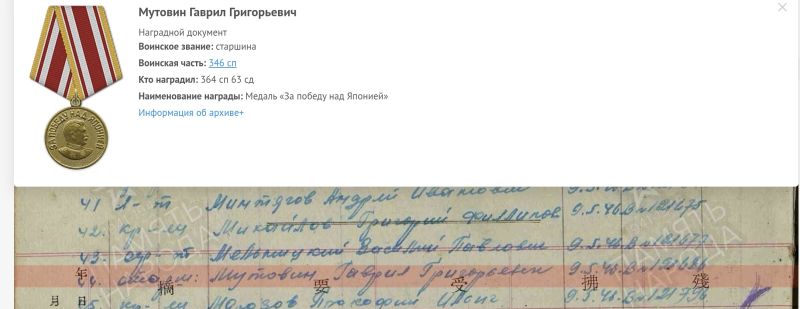 Мутовин Гаврил Григорьевич
Наградной документ
Воинское звание: старшина
Воинская часть: 346 сп
Кто наградил: 364 сп 63 сд
Наименование награды: Медаль «За победу над Японией»
Информация об архиве+
ЗА ПОБЕДУ НАД ЯПОНИЕЙ
41 Андрей 9.5.46.
42. кр-ец Михайлов Григорий Филиппов 9.5.46.
43. Мельницкий Василий Павлович 9.5.46.
年 日 Мутовин Гаврил Григорьевич 9.5.46.
月 摘 要 受 拂 殘
кр-ец Прокофий 9.5.46.
ПАМЯТЬ НАРОДА